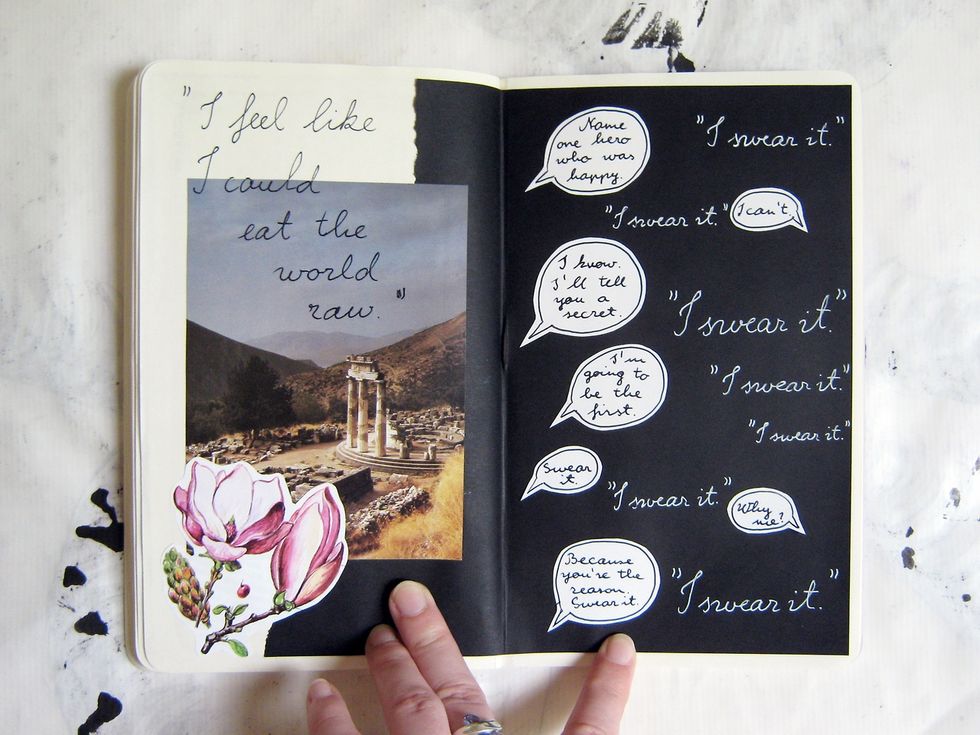 "I feel like
I could
eat the
world
raw."
Name
one hero
who was
happy.
"I swear it."
"I swear it."
I can't.
I know.
I'll tell
you a
secret.
"I swear it."
I'm
going to
be the
first.
"I swear it."
"I swear it."
Swear
it.
"I swear it."
Why
me?
Because
you're the
reason.
Swear it.
"I swear it."